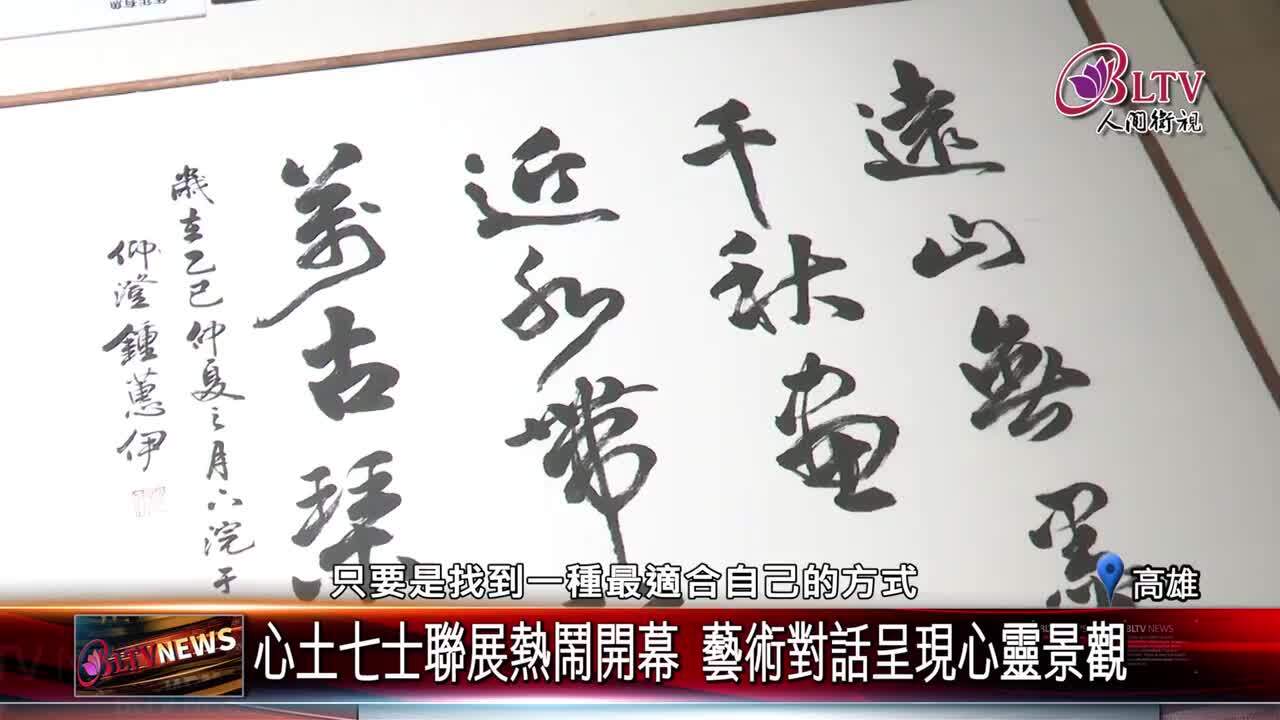 BLTV
人間衛視
遠山無墨
千秋畫
近水
萬古琴
歲在乙巳仲夏之月下浣于
仰澄鍾蕙伊
只要是找到一種最適合自己的方式
高雄
BLTV NEWS
心土七士聯展熱鬧開幕 藝術對話呈現心靈景觀
BLTV NEWS